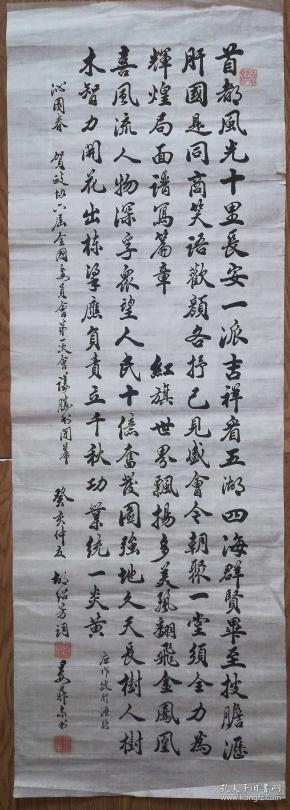 首都風光十里長安一派吉祥看五湖四海群賢畢至披膽瀝
肝國是同商笑語歡顏各抒己見盛會今朝聚一堂須全力為
輝煌局面譜寫篇章 紅旗世界飄揚多美麗翩飛金鳳凰
喜風流人物深孚眾望人民十億奮發圖強地久天長樹人樹
木智力開花出棟梁應負責立千秋功業統一炎黃
沁園春 賀政協六屆全國委員會第一次會議勝利開幕 癸亥仲夏 胡紹芳詞
孔夫子旧书网